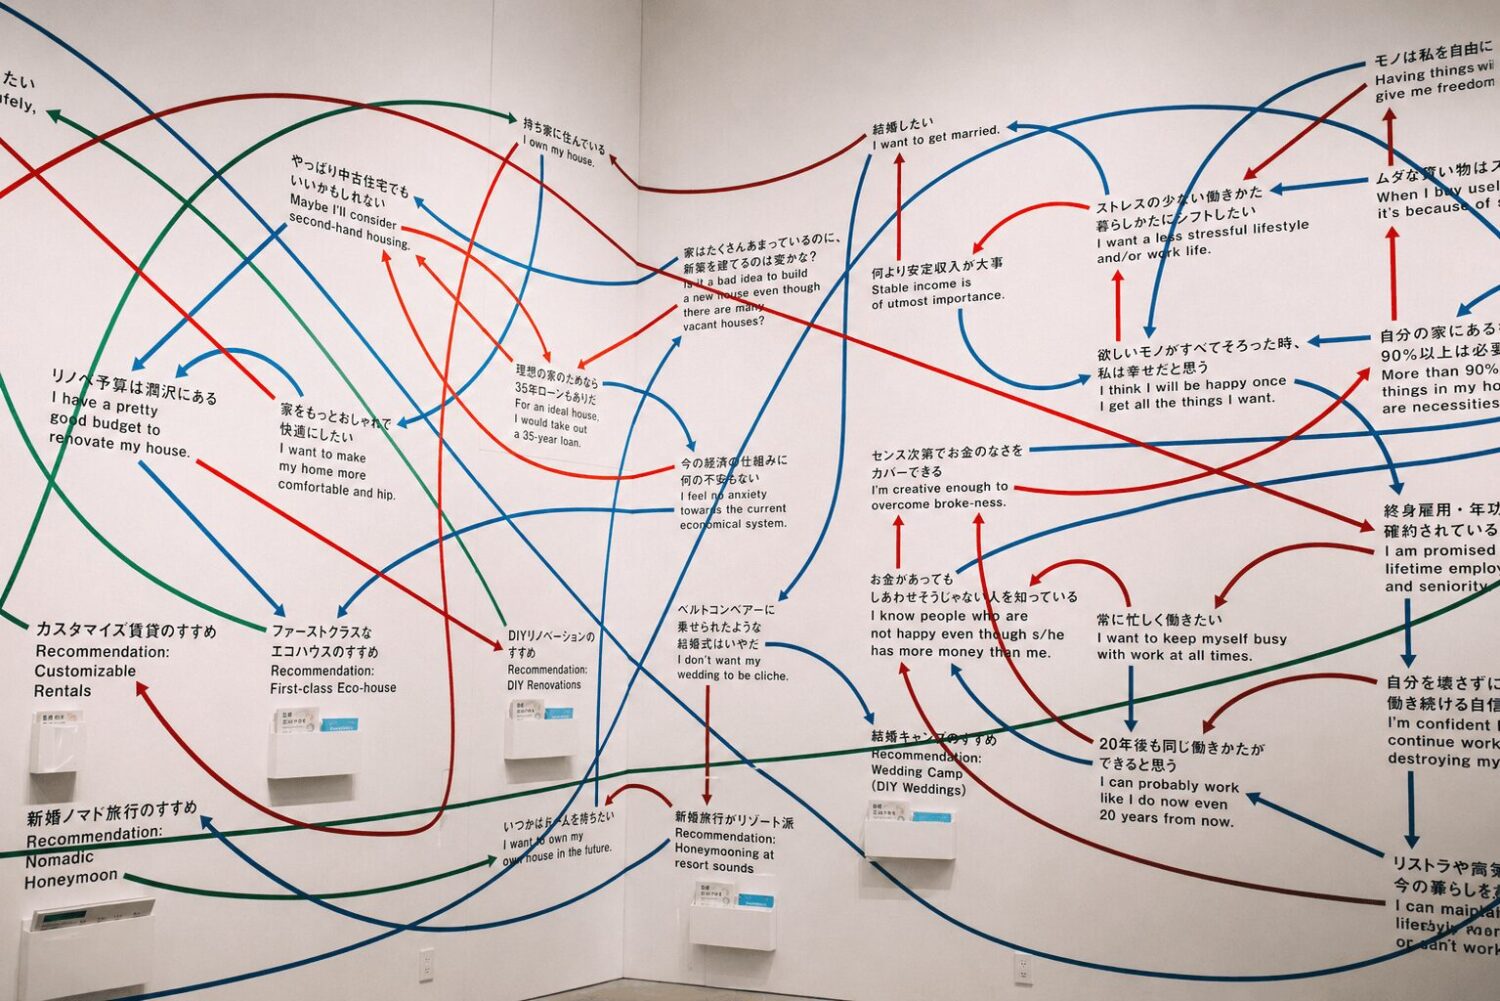 たい
fely,
持ち家に住んでいる
I own my house.
やっぱり中古住宅でも
いいかもしれない
Maybe I'll consider
second-hand housing.
家はたくさんあまっているのに、
新築を建てるのは変かな?
Is it a bad idea to build
a new house even though
there are many
vacant houses?
リノベ予算は潤沢にある
I have a pretty
good budget to
renovate my house.
家をもっとおしゃれで
快適にしたい
I want to make
my home more
comfortable and hip.
理想の家のためなら
35年ローンもありだ
For an ideal house,
I would take out
a 35-year loan.
今の経済の仕組みに
何の不安もない
I feel no anxiety
towards the current
economical system.
カスタマイズ賃貸のすすめ
Recommendation:
Customizable
Rentals
ファーストクラスな
エコハウスのすすめ
Recommendation:
First-class Eco-house
DIYリノベーションの
すすめ
Recommendation:
DIY Renovations
新婚ノマド旅行のすすめ
Recommendation:
Nomadic
Honeymoon
いつかは
ームを持ちたい
I want to own my
own house in the future.
ベルトコンベアーに
乗せられたような
結婚式はいやだ
I don't want my
wedding to be cliche.
新婚旅行がリゾート派
Recommendation:
Honeymooning at
resort sounds
結婚キャンプのすすめ
Recommendation:
Wedding Camp
(DIY Weddings)
結婚したい
I want to get married.
何より安定収入が大事
Stable income is
of utmost importance.
ストレスの少ない働きかた
暮らしかたにシフトしたい
I want a less stressful lifestyle
and/or work life.
モノは私を自由に
Having things wil
give me freedom
ムダな買い物はス
When I buy usel
it's because of s
欲しいモノがすべてそろった時、
私は幸せだと思う
I think I will be happy once
I get all the things I want.
自分の家にある
90%以上は必要
More than 90%
things in my ho
are necessities
センス次第でお金のなさを
カバーできる
I'm creative enough to
overcome broke-ness.
お金があっても
しあわせそうじゃない人を知っている
I know people who are
not happy even though s/he
has more money than me.
常に忙しく働きたい
I want to keep myself busy
with work at all times.
終身雇用・年功
確約されている
I am promised
lifetime employ
and seniority.
20年後も同じ働きかたが
できると思う
I can probably work
like I do now even
20 years from now.
自分を壊さずに
働き続ける自信
I'm confident I
continue work
destroying my
リストラや
今の暮らしを
I can maintai
or can't work